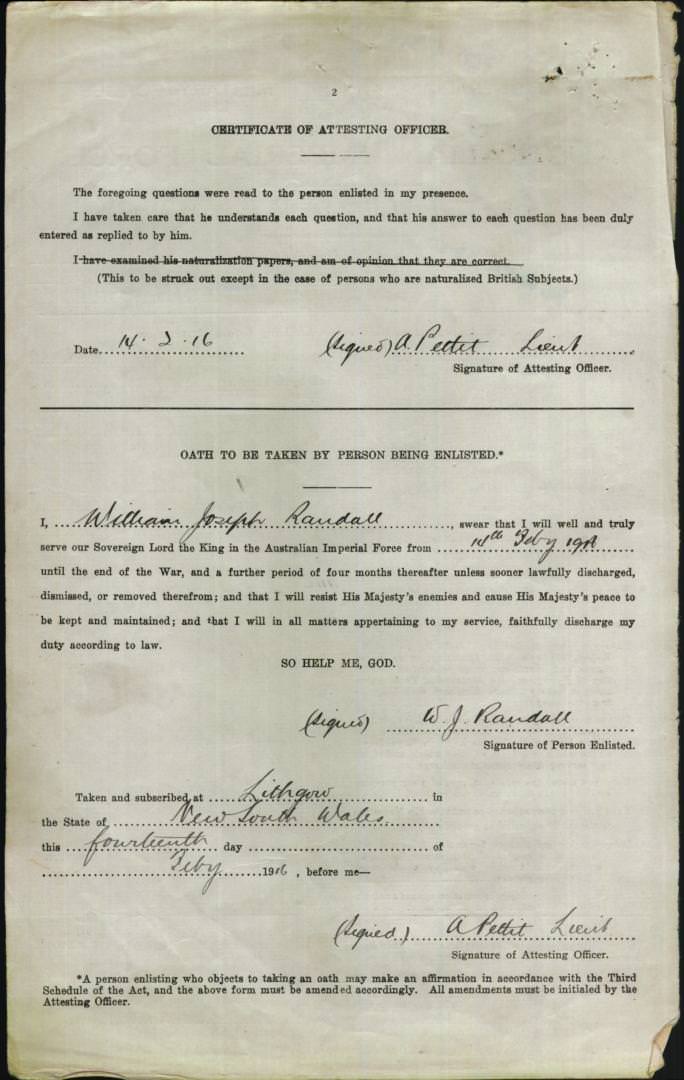 2
CERTIFICATE OF ATTESTING OFFICER.
The foregoing questions were read to the person enlisted in my presence.
I have taken care that he understands each question, and that his answer to each question has been duly
entered as replied to by him.
I have examined his naturalization papers, and am of opinion that they are correct.
(This to be struck out except in the case of persons who are naturalized British Subjects.)
Date 14 · 2 · 16 (Signed) A Pettit Lieut
Signature of Attesting Officer.
OATH TO BE TAKEN BY PERSON BEING ENLISTED.*
I, William Joseph Randall, swear that I will well and truly
serve our Sovereign Lord the King in the Australian Imperial Force from 14th Feby
until the end of the War, and a further period of four months thereafter unless sooner lawfully discharged,
dismissed, or removed therefrom; and that I will resist His Majesty's enemies and cause His Majesty's peace to
be kept and maintained; and that I will in all matters appertaining to my service, faithfully discharge my
duty according to law.
SO HELP ME, GOD.
(Signed) W. J. Randall
Signature of Person Enlisted.
Taken and subscribed at Lithgow in
the State of New South Wales
this fourteenth day of
Feby 1916, before me—
(Signed.) A Pettit Lieut
Signature of Attesting Officer.
*A person enlisting who objects to taking an oath may make an affirmation in accordance with the Third
Schedule of the Act, and the above form must be amended accordingly. All amendments must be initialed by the
Attesting Officer.